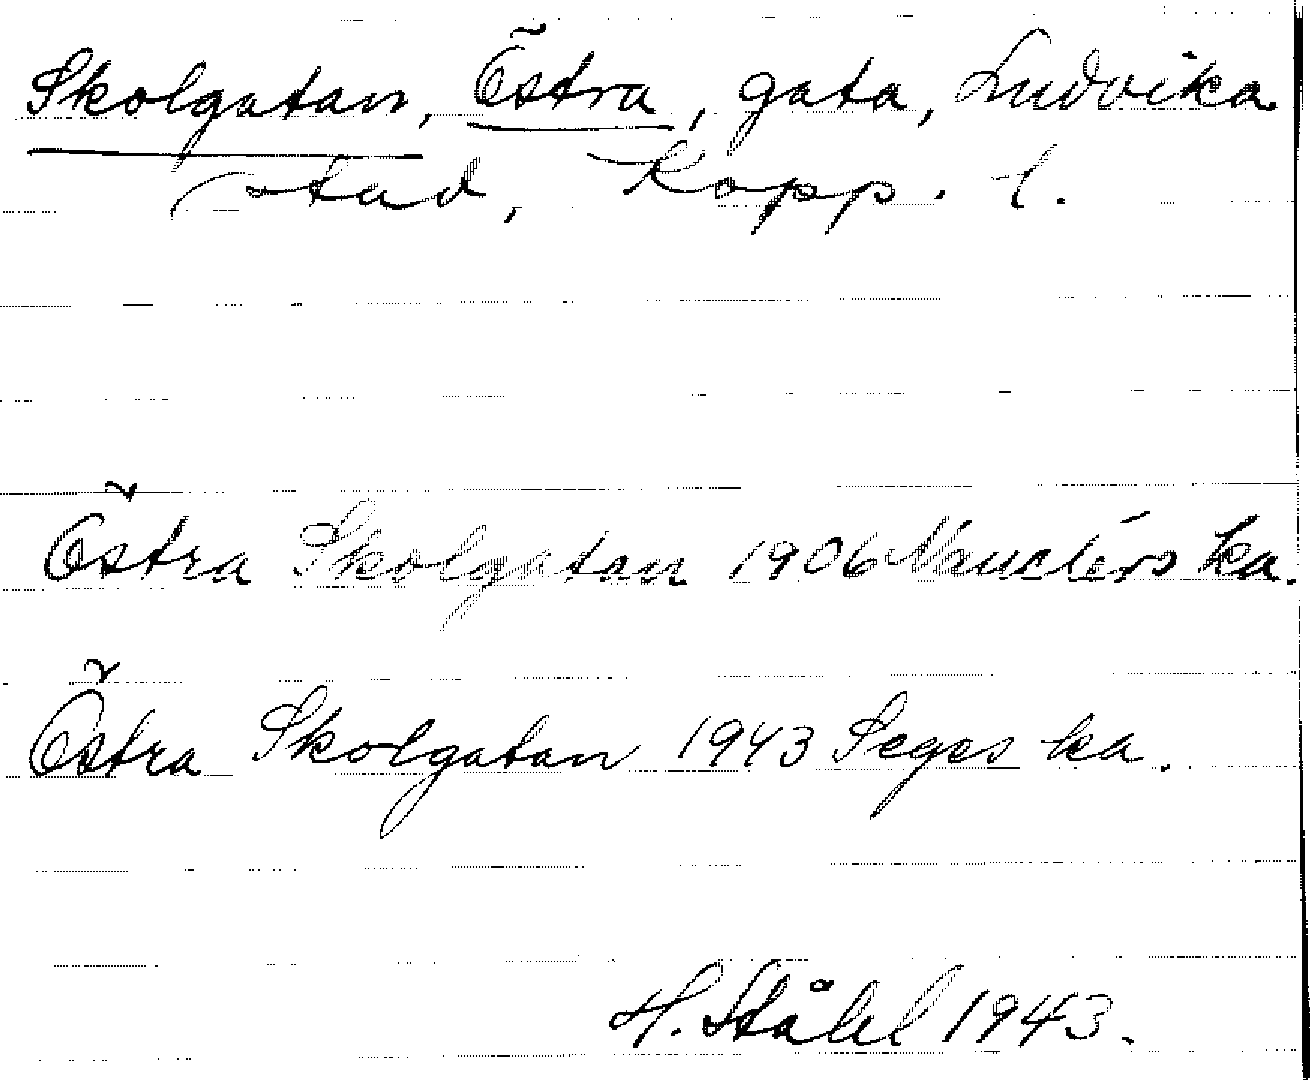 Skolgatan, Östra, gata, Ludvika
stad, Kopp. l.
Östra Skolgatan 1906 Nauclérs ka.
Östra Skolgatan 1943 Seges ka.
H. Ståhl 1943.